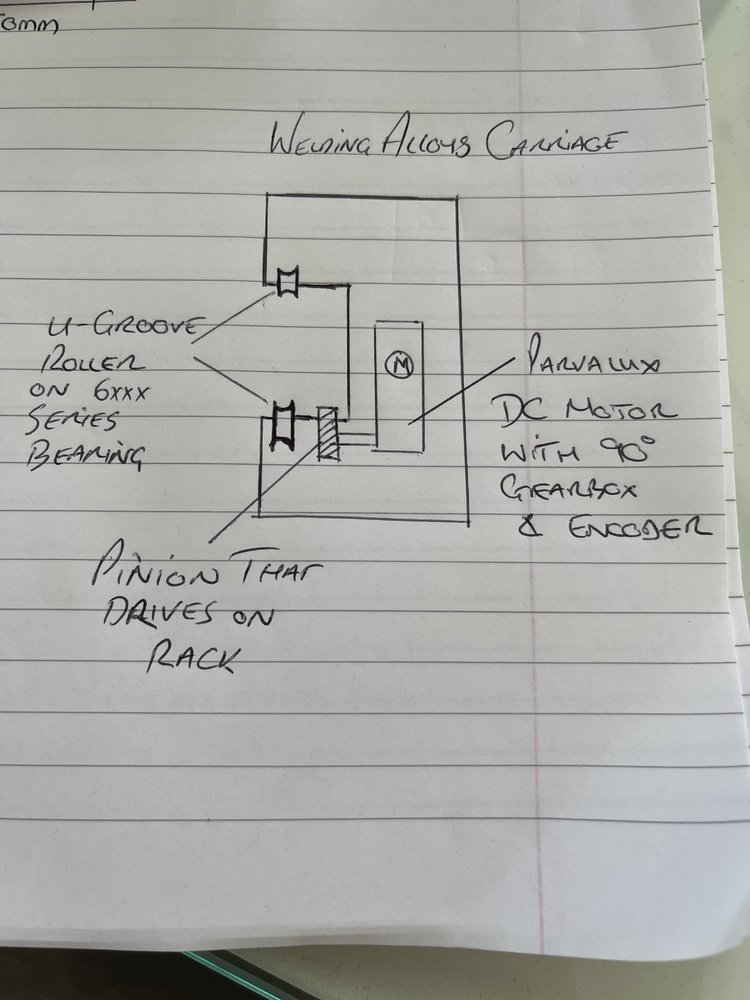 Welding Alloys Carriage
U-Groove
Roller
on 6xxx
Series
Bearing
M
Parvalux
DC Motor
with 90°
Gearbox
& Encoder
Pinion That
Drives on
Rack